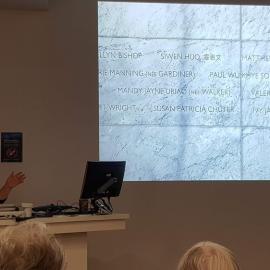 LYN BISHOP SIWEN HUO MATTHE
RIE MANNING (NEE GARDINER) PAUL WU
MANDY JAYNE URIAO (NEE WALKER) VALER
WRIGHT SUSAN PATRICIA CHUTER